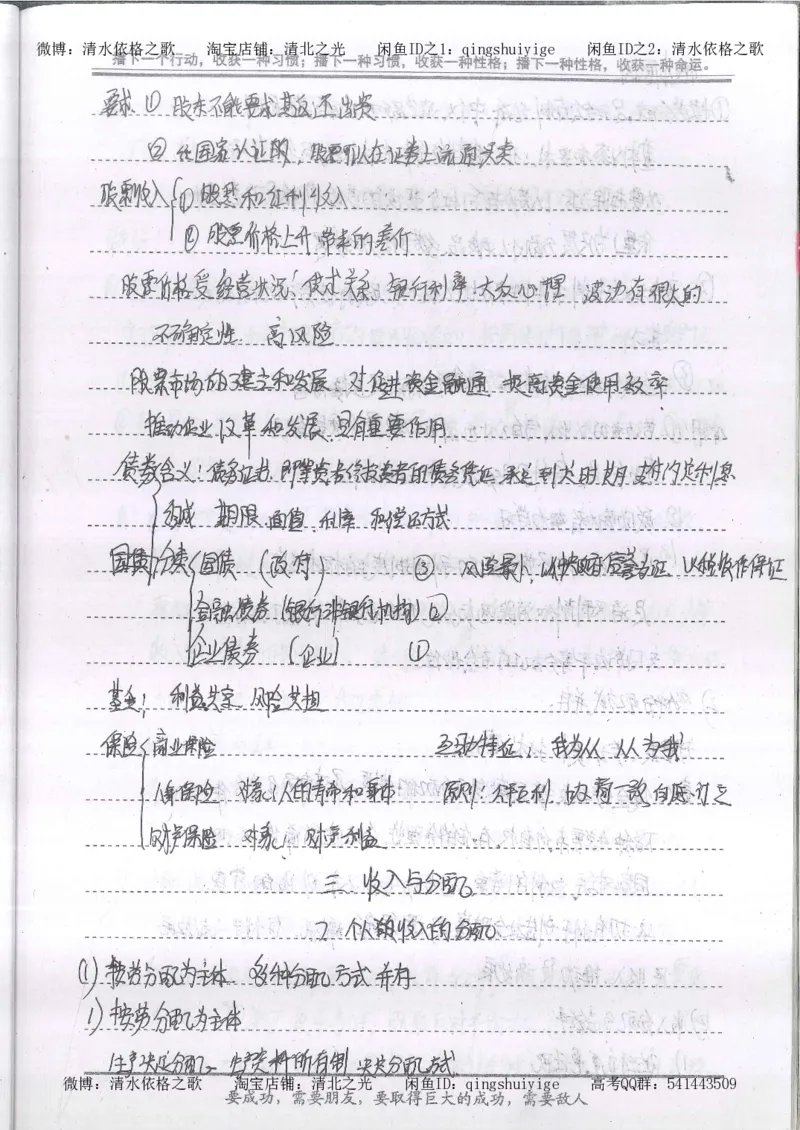 微博：清水依格之歌 淘宝店铺：清北之光 闲鱼ID之1：qingshuiyige 闲鱼ID之2：清水依格之歌
播下一个行动，收获一种习惯；播下一种习惯，收获一种性格；播下一种性格，收获一种命运。
要求 ① 股东不能要求其返还出资
② 在国家认证的，股票可以在证券上流通买卖
股票收入 ① 股息和红利收入
② 股票价格上升带来的差价
股票价格受经营状况、供求关系 银行利率 大众心理 波动有很大的
不确定性 高风险
股票市场的建立和发展 对促进资金融通 提高资金使用效率
推动企业改革和发展 具有重要作用
债券含义：债务证书 即筹资者给投资者的债务凭证 承诺到大时期 支付约定利息
构成 期限 面值 利率 和偿还方式
国债 分类 国债 (政府) ③ 风险最小 以 政府信誉 证 以税收作保证
金融债券 (银行非银行机构) ②
企业债券 (企业) ①
基金： 利益共享 风险共担
保险 商业保险 互助特征：我为人人 人人为我
人身保险 对象：人的寿命和身体 原则：公平互利 协商一致 自愿订立
财产保险 对象：财产利益
三 收入与分配
个人收入的分配
(1) 按劳分配为主体 多种分配方式并存
1) 按劳分配为主体
生产决定分配 生产资料所有制 决定分配方式
微博：清水依格之歌 淘宝店铺：清北之光 闲鱼ID：qingshuiyige 高考QQ群：541443509
要成功，需要朋友，要取得巨大的成功，需要敌人